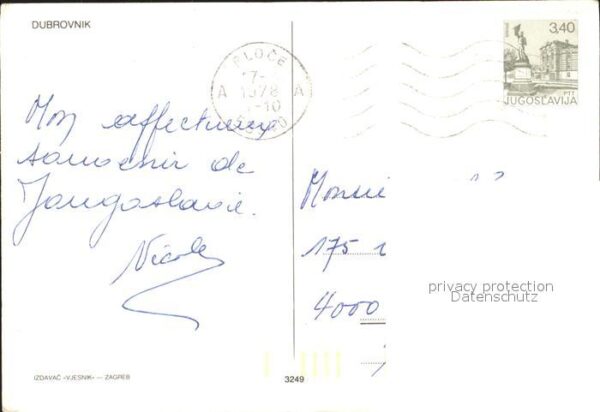 DUBROVNIK
PLOČE
A 1978 A
3,40
PTT
JUGOSLAVIJA
Mon affectueux
souvenir de
Yougoslavie.
Nicole
175
4000
privacy protection
Datenschutz
IZDAVAČ «VJESNIK» — ZAGREB
3249